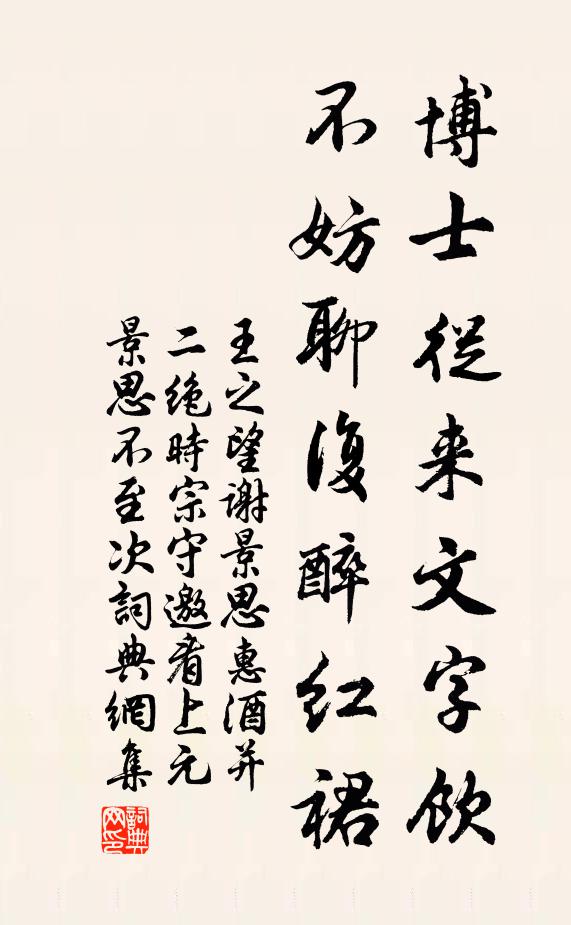 博士從来文字飲
不妨聊復醉红裙
王之望谢景思惠酒并
二绝時宗守邀看上元
景思不至次詞典網集
詞典
网印